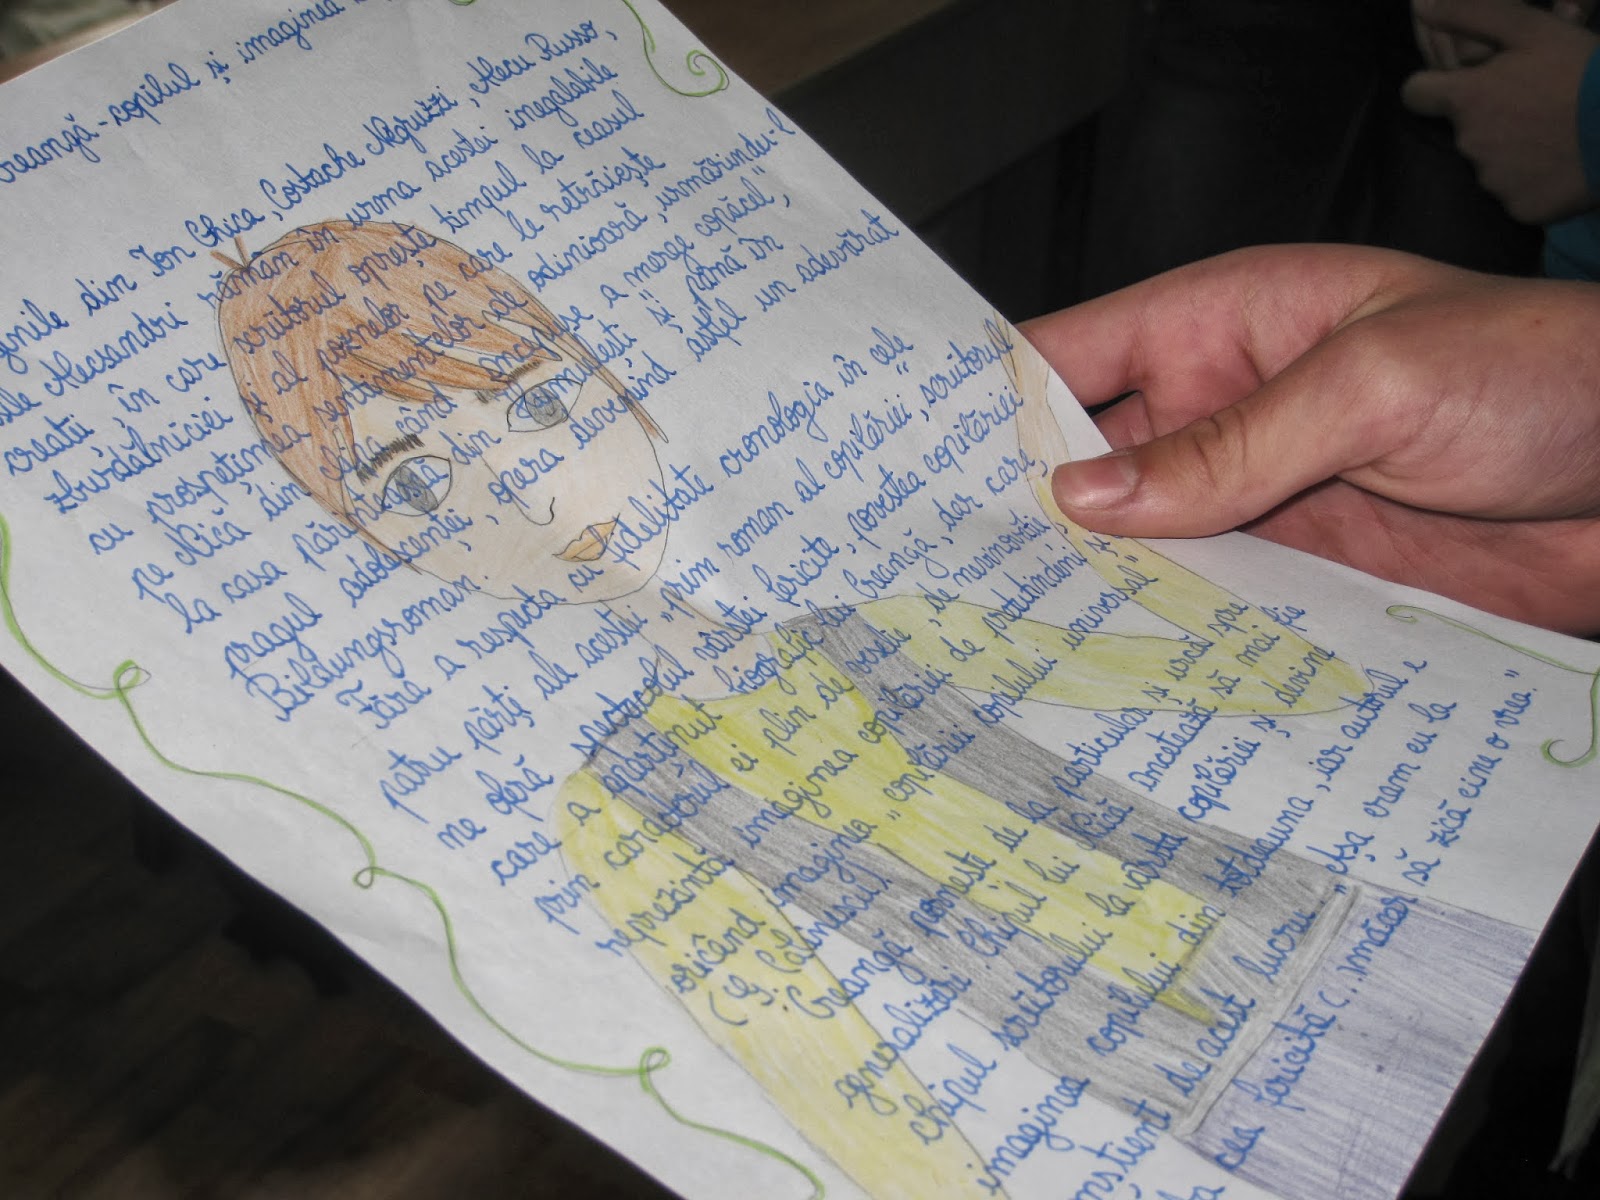 reangă - copilul și imaginea
ginile din Ion Ghica, Costache Negruzzi, Alecu Russo,
ile Alecsandri rămân în urma acestei inegalabile
creații, în care scriitorul oprește timpul la ceasul
zburdălniciei și al poznelor pe care le retrăiește
cu prospețimea sentimentelor de odinioară, urmărindu-l
pe Nică din clipa când începuse a merge copăcel,
la casa părintească din Humulești și până în
pragul adolescenței, opera devenind astfel un adevărat
Bildungsroman.
Fără a respecta cu fidelitate cronologia în cele
patru părți ale acestei „prim roman al copilăriei", scriitorul
ne oferă spectacolul vârstei fericite, povestea copilăriei
care a aparținut biografiei lui Creangă, dar care,
prin cordorul ei plin de veselie, de nevinovăție,
reprezintă imaginea copilăriei de pretutindeni și
oricând, imaginea „copilăriei copilului universal"
(G. Călinescu).
Creangă pornește de la particular și urcă spre
generalizări. Chipul lui Nică încetează să mai fie
chipul scriitorului la vârsta copilăriei și devine
imaginea copilului din totdeauna, iar autorul e
nștient de acest lucru: „Așa eram eu la
cea fericită (...) măcar să zică cine o vrea."